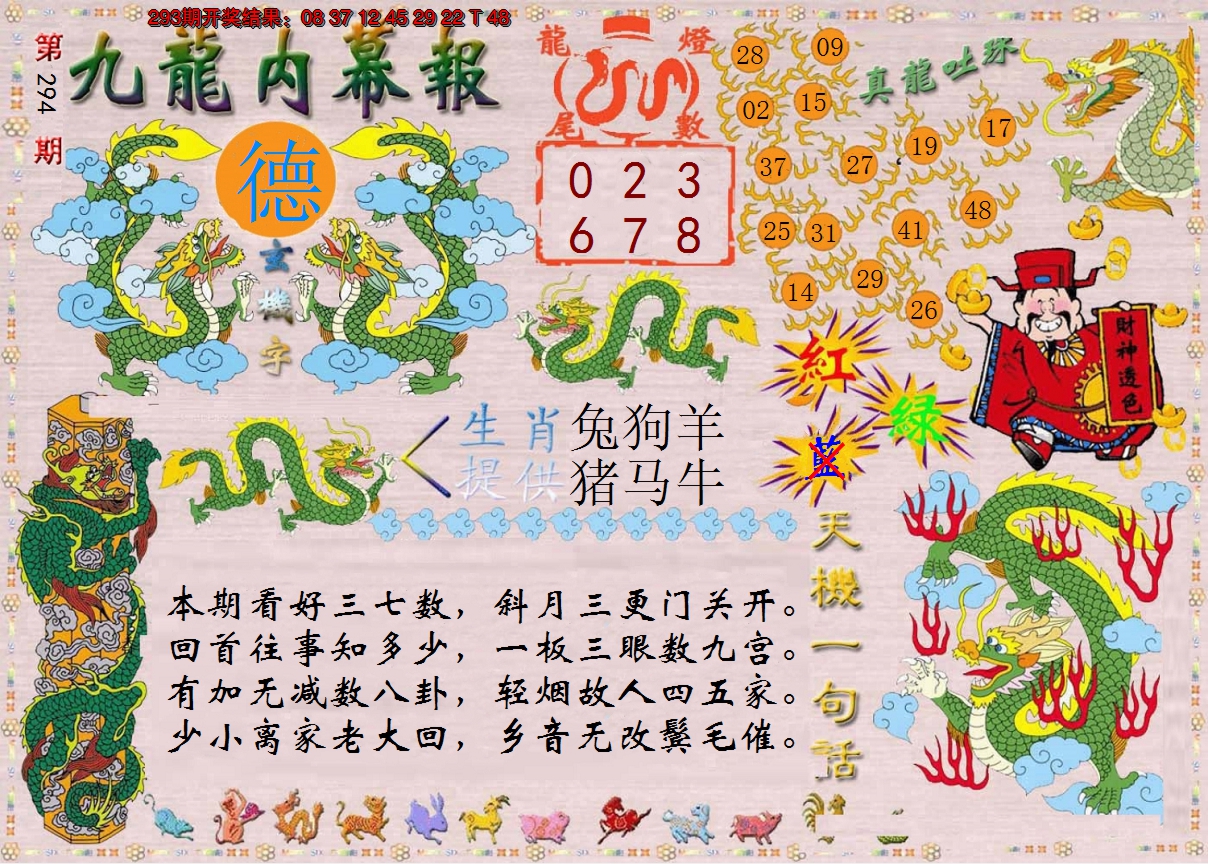 293期开奖结果：08 37 12 45 29 22 T 48
第294期
九龍内幕報
德
玄機字
龍燈
尾數
0 2 3
6 7 8
真龍吐珠
28 09
02 15
37 27 19 17
25 31 41 48
14 29 26
紅
綠
藍
財神透色
生肖 兔狗羊
提供 猪马牛
天機一句話
本期看好三七数，斜月三更门关开。
回首往事知多少，一板三眼数九宫。
有加无减数八卦，轻烟故人四五家。
少小离家老大回，乡音无改鬓毛催。